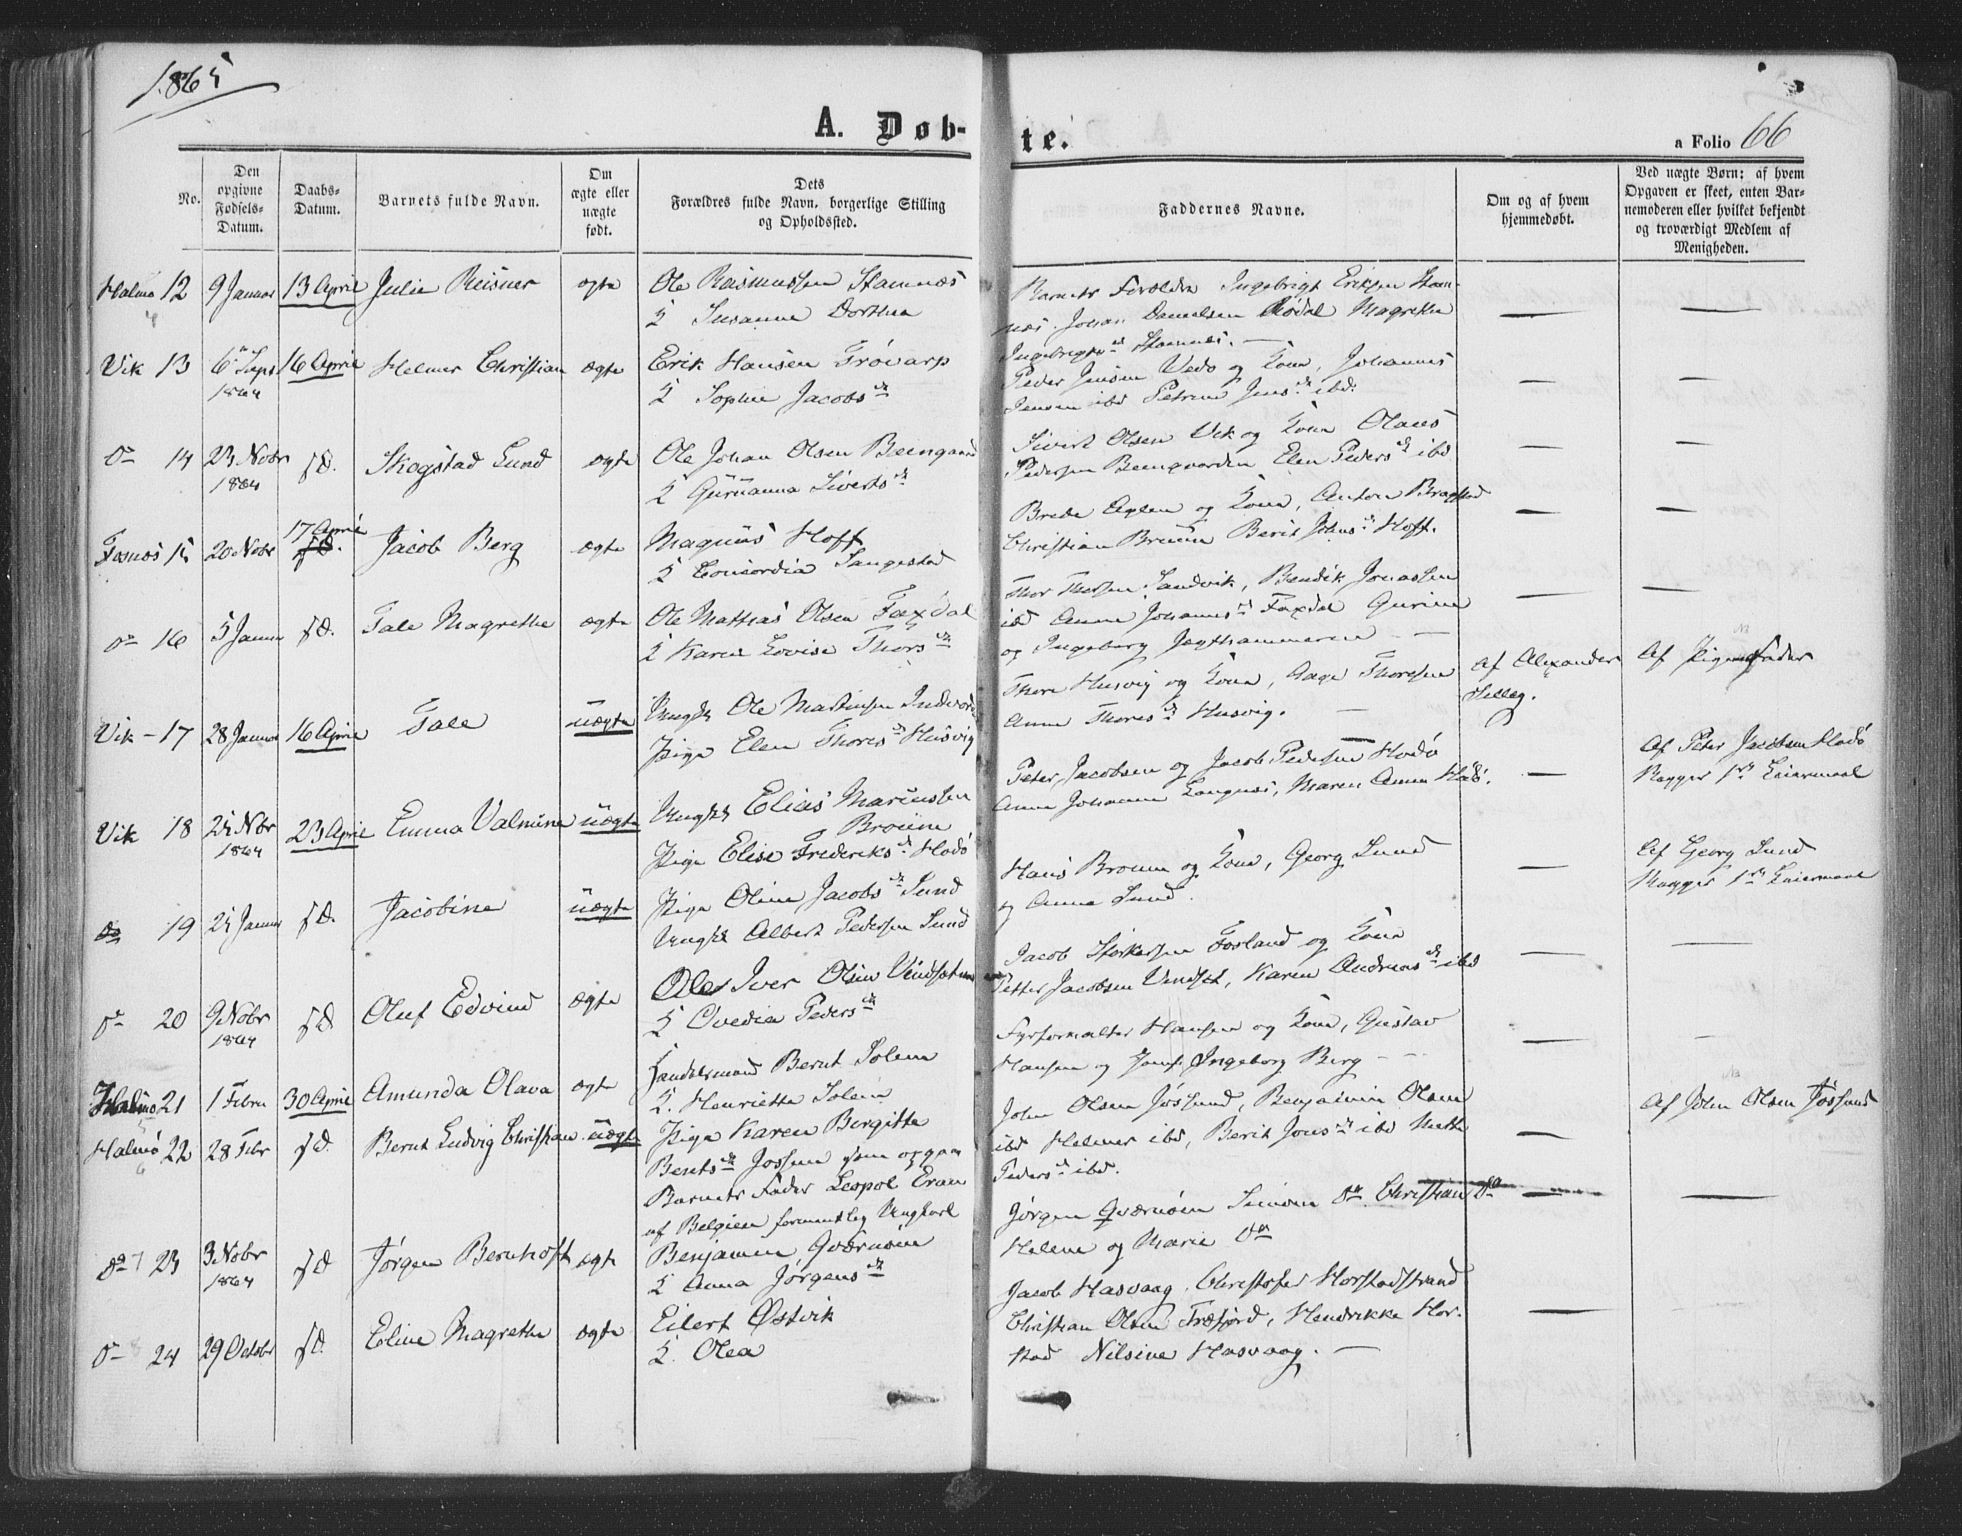 1865
A. Døb-
te.
a Folio 66
No.
Den opgivne Fødsels-Datum.
Daabs-Datum.
Barnets fulde Navn.
Om ægte eller uægte født.
Dets Forældres fulde Navn, borgerlige Stilling og Opholdssted.
Faddernes Navne.
Om og af hvem hjemmedøbt.
Ved uægte Børn; af hvem Opgaven er skeet, enten Barnemoderen eller hvilket bekjendt og troværdigt Medlem af Menigheden.
12 9 Januar 13 April Julie Reisner ægte Ole Rasmussen Stamnæs
K Susanne Dorthea
Barnets Forældre Ingebrigt Eriksen Stam-
næs. Johan Danielsen Rødal Magrethe
Ingebrigtsd Stamnæs. —
Vik 13 6 Sept 1864 16 April Helmer Christian ægte Erik Hansen
K Sophie Jacobsd
Peder Jensen Vedo og Kona, Johannes
Jensen ibd Petrine Jensd ibd.
Do 14 23 Nobr 1864 sD. Skogstad Lund ægte Ole Johan Olsen
K Guruanna Sivertsd
Sivert Olsen Vik og Kona Olaus
Pedersen Elen Pedersd ibd
Fosnæs 15 20 Nobr 17 April sD. Jacob Berg ægte Magnus Hoff
K Concordia
Brede og Kona, Anton
Christian Bruun Berit Johnsd Hoff.
Do 16 5 Januar sD. Tale Magrethe ægte Ole Mathias Olsen Faxdal
K Karen Lovise Thorsd
Thor Thorsen Sandvik, Bendik Jonassen
ibd Anne Johannsd Faxdal Gurine
og Ingeborg —
Vik - 17 28 Januar 16 April Tale uægte Ungk Ole Martinsen
Pige Elen Thoresd Husvig
Thore Husvig og Kona, Aage Thoresen
Anne Thoresd Husvig. —
Af Alexander
Af Pigens Fader
Vik 18 25 Nbr 1864 23 April Emma Valmine uægte Ungk Elias Marinssen
Broum
Pige Elise Frederiksd Hodø
Peter Jacobsen og Jacob Pedersen Hodø
Anne Johanna Langnæs, Maren Anna Hodø.
Af Peter Jacobsen Hodø
Begges 1ste Leiermaal
do 19 25 Januar sD. Jacobine uægte Pige Oline Jacobsd Sund
Ungk Albert Pedersen Sund
Hans Broum og Kona, Georg Sund
og Anna Sund.
Af Georg Sund
Begges 1ste Leiermaal
Do 20 9 Nobr 1864 sD Oluf Edvind ægte Ole Iver Olsen
K Ovedia Pedersd
Jacob Storkersen Fosland og Kona
Petter Jacobsen, Karen Andreasd ibd
21 1 Febru 30 April Amunda Olava ægte Handelsmand Bernt Solem
K. Henriette Solem
Fyrforvalter Hansen og Kona, Gustav
Hansen og Jomf. Ingeborg Berg —
22 28 Febr sD. Bernt Ludvig Christian uægte Pige Karen Birgitte
Berntsd Jøssund som opgav
Barnets Fader Leopol Eram
af Belgien formentlig Ungkarl
John Olsen Jøssund, Benjamin Olsen
ibd Helmer ibd, Berit Jonsd ibd Mette
Pedersd ibd.
Af John Olsen Jøssund
Do 23 3 Nobr 1864 sD Jørgen Bernhoft ægte Benjamin Qværnøen
K Anna Jørgensd
Jørgen Qværnøen Simon Do Christian Do
Helene og Marie Do
Do 24 29 Octobr sD. Eline Magrethe ægte Eilert Østvik
K. Olea
Jacob Hasvaag, Christofer Horstadstrand
Christian Olsen Træfjord, Hendrikke Hor-
stad Nilsine Hasvaag. —